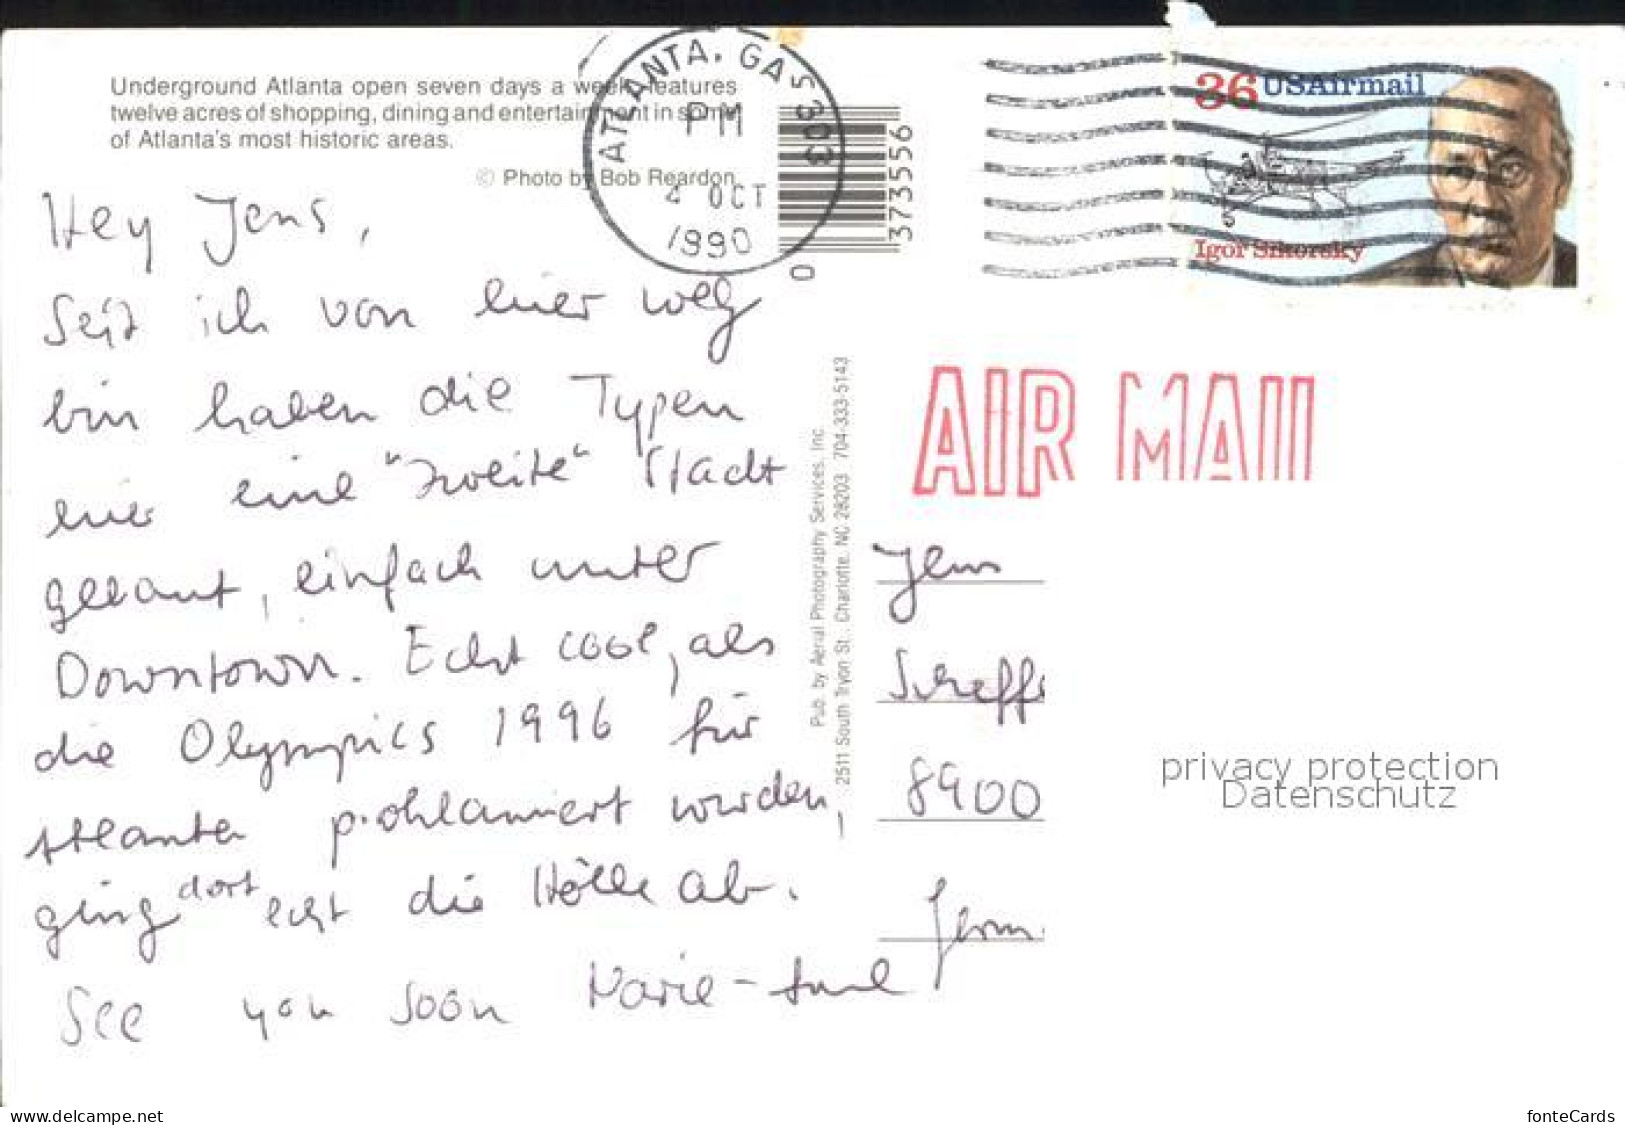 Underground Atlanta open seven days a week features
twelve acres of shopping, dining and entertainment in some
of Atlanta's most historic areas.
© Photo by Bob Reardon
Hey Jens,
Seit ich von hier weg
bin haben die Typen
hier eine "zweite" Stadt
gebaut, einfach unter
Downtown. Echt cool, als
die Olympics 1996 für
Atlanta prohlamiert wurden,
ging dort echt die Hölle ab.
See you soon Marie-
ATLANTA, GA 303
PM
OCT
1990
3735556
0
Pub. by Aerial Photography Services, Inc.
2511 South Tryon St., Charlotte, NC 28203 704-333-5143
36 USAirmail
Igor Sikorsky
AIR MAIL
Jens
8900
privacy protection
Datenschutz
www.delcampe.net
fonteCards